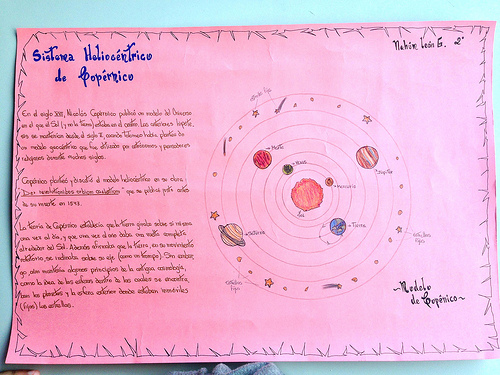 Sistema Heliocéntrico
de Copérnico
Nahúm León G. 2°
En el siglo XVI, Nicolás Copérnico publicó un modelo del Universo
en el que el Sol (y no la Tierra) estaba en el centro. Las anteriores hipóte-
sis se mantenían desde el siglo II, cuando Tolomeo había planteado
un modelo geocéntrico que fue utilizado por astrónomos y pensadores
religiosos durante muchos siglos.
Copérnico planteó y discutió el modelo heliocéntrico en su obra
"De revolutionibus orbium coelestium" que se publicó poco antes
de su muerte en 1543.
La teoría de Copérnico establecía que la tierra giraba sobre sí misma
una vez al día, y que una vez al año daba una vuelta completa
alrededor del Sol. Además afirmaba que la tierra, en su movimiento
rotatorio, se inclinaba sobre su eje (como un trompo). Sin embar-
go, aún mantenía algunos principios de la antigua cosmología,
como la idea de las esferas dentro de las cuales se encontra-
ban los planetas y la esfera exterior donde estaban inmóviles
(fijas) las estrellas.
Estrellas fijas
Marte
Venus
Júpiter
Mercurio
Sol
Tierra
Saturno
Estrellas
fijas
Estrellas
fijas
~Modelo
de Copérnico~